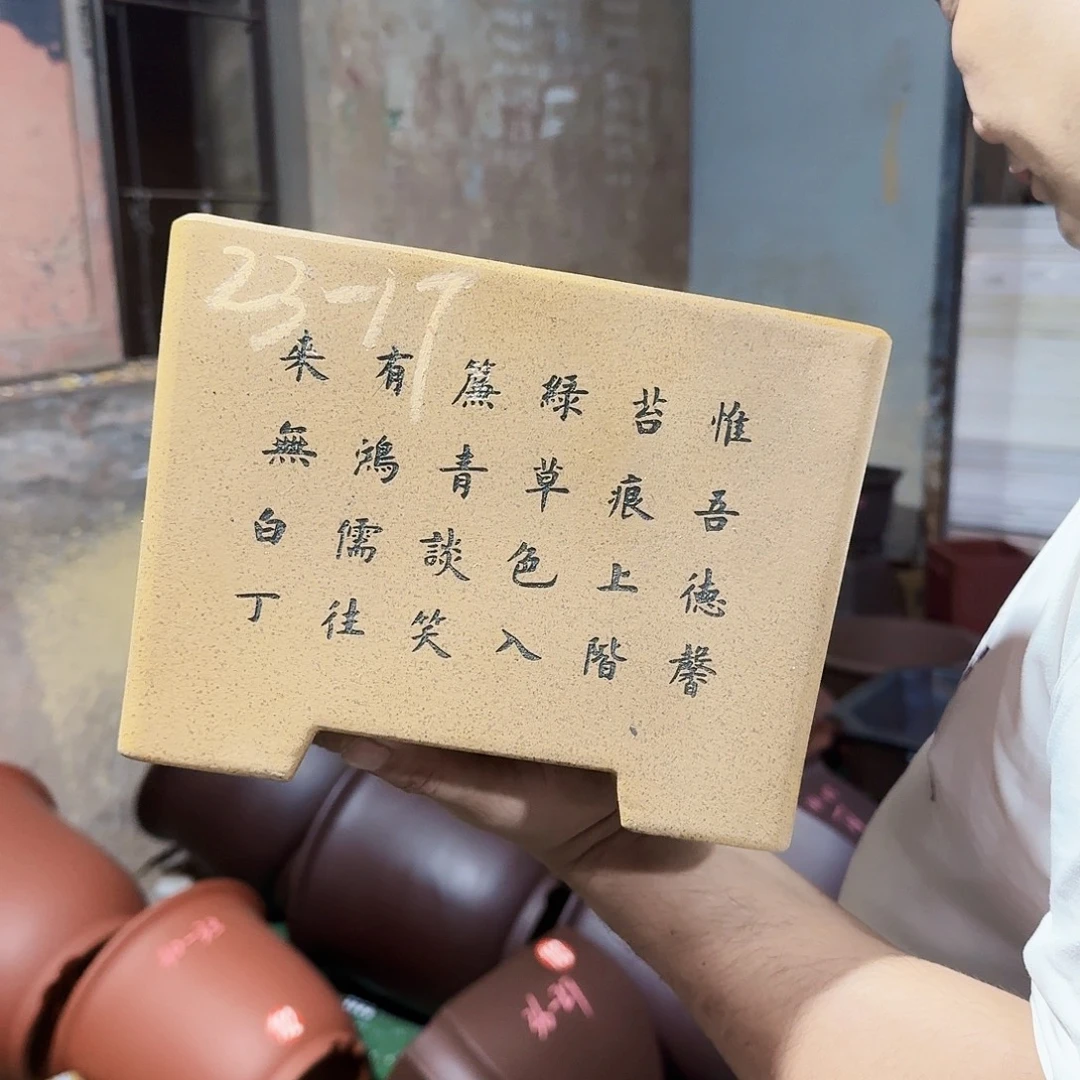 23-17
惟吾徳馨
苔痕上階
綠草色入
簾青談笑
有鴻儒往
来無白丁
36-29